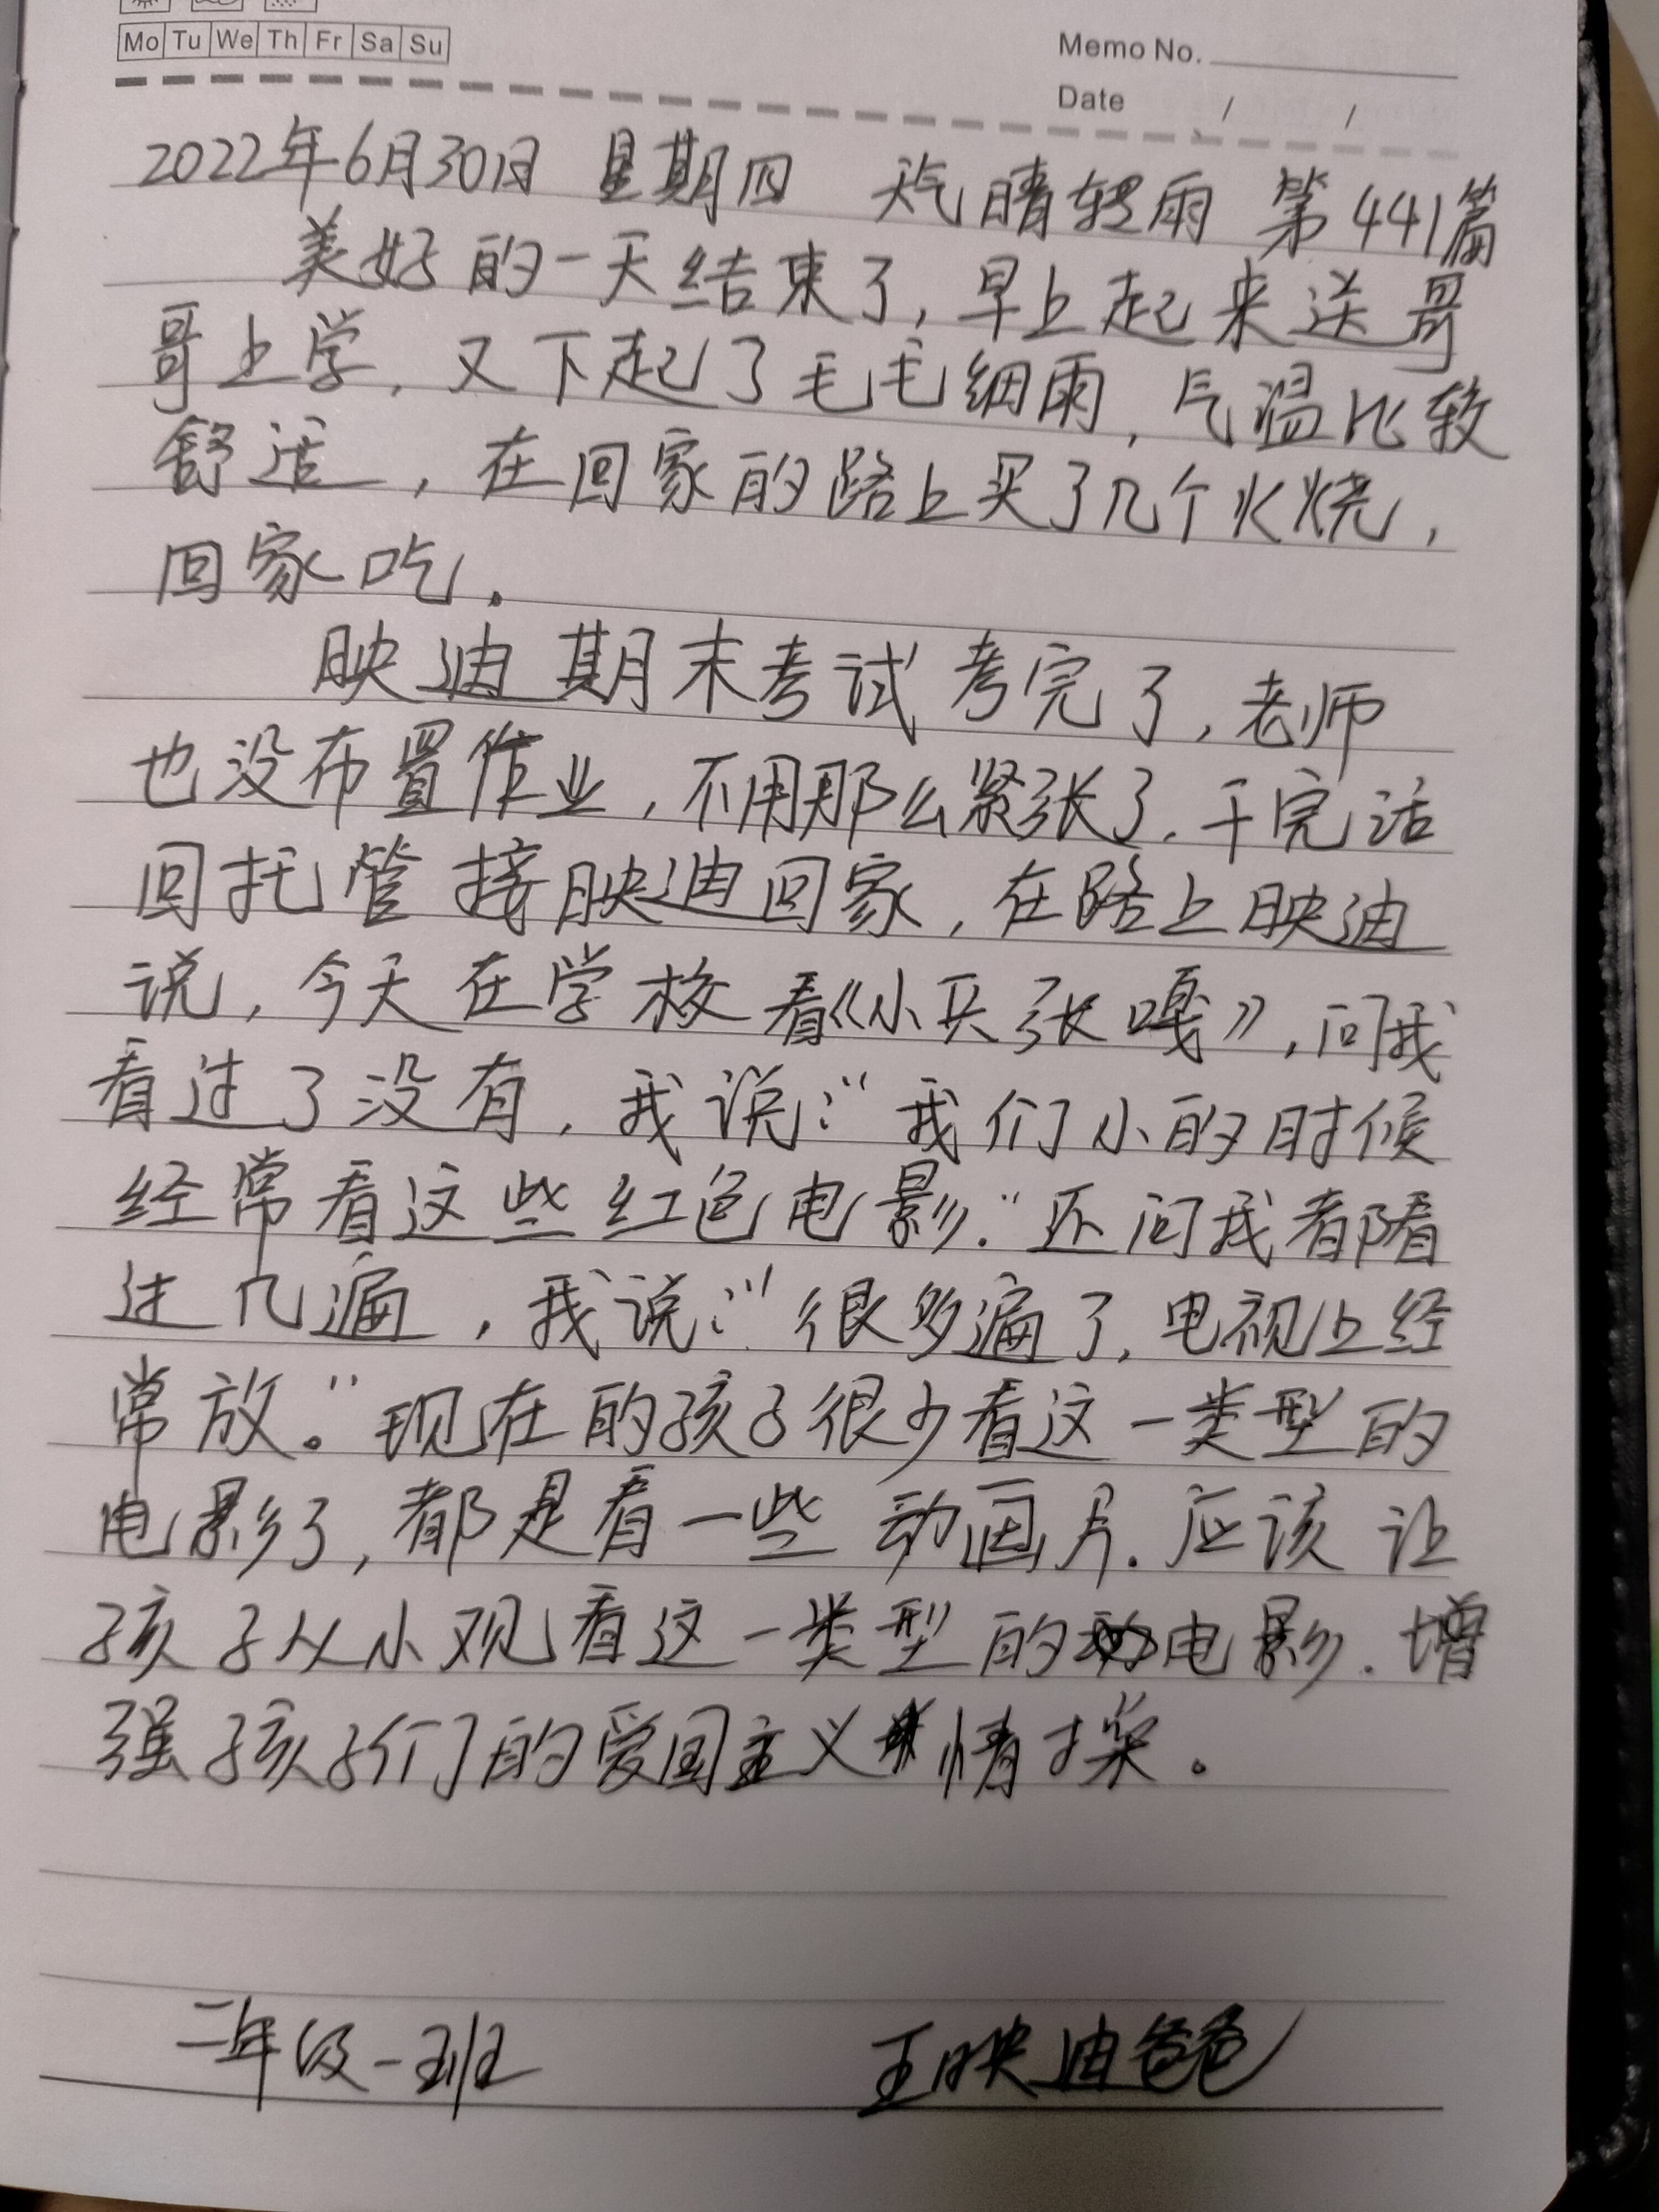 Mo Tu We Th Fr Sa Su
Memo No.
Date / /
2022年6月30日 星期四 天气晴转雨 第441篇
美好的一天结束了,早上起来送哥
哥上学,又下起了毛毛细雨,气温比较
舒适,在回家的路上买了几个火烧,
回家吃.
映迪期末考试考完了,老师
也没布置作业,不用那么紧张了.干完活
回托管接映迪回家,在路上映迪
说,今天在学校看《小兵张嘎》,问我
看过了没有,我说:“我们小的时候
经常看这些红色电影.”还问我都看
过几遍,我说:“很多遍了,电视上经
常放。”现在的孩子很少看这一类型的
电影了,都是看一些动画片.应该让
孩子从小观看这一类型的电影.增
强孩子们的爱国主义情操。
二年级一班 王映迪爸爸